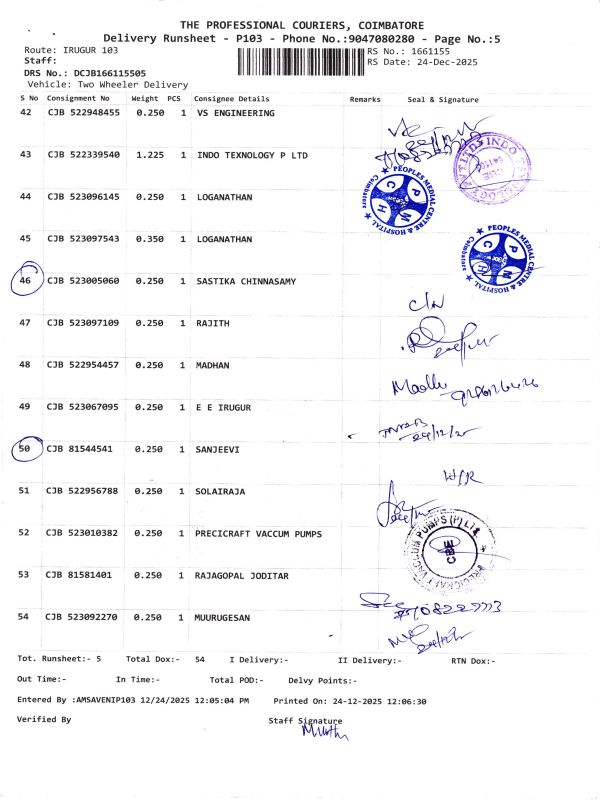 THE PROFESSIONAL COURIERS, COIMBATORE
Delivery Runsheet - P103 - Phone No.:9047080280 - Page No.:5
Route: IRUGUR 103 RS No.: 1661155
Staff: RS Date: 24-Dec-2025
DRS No.: DCJB166115505
Vehicle: Two Wheeler Delivery
S No Consignment No Weight PCS Consignee Details Remarks Seal & Signature
42 CJB 522948455 0.250 1 VS ENGINEERING
43 CJB 522339540 1.225 1 INDO TEXNOLOGY P LTD
44 CJB 523096145 0.250 1 LOGANATHAN
PEOPLES MEDIAL CENTRE & HOSPITAL
Coimbatore
P M C H
45 CJB 523097543 0.350 1 LOGANATHAN
PEOPLES MEDIAL CENTRE & HOSPITAL
Coimbatore
P M C H
46 CJB 523005060 0.250 1 SASTIKA CHINNASAMY
C/N
47 CJB 523097109 0.250 1 RAJITH
48 CJB 522954457 0.250 1 MADHAN
49 CJB 523067095 0.250 1 E E IRUGUR
24/12/25
50 CJB 81544541 0.250 1 SANJEEVI
51 CJB 522956788 0.250 1 SOLAIRAJA
52 CJB 523010382 0.250 1 PRECICRAFT VACCUM PUMPS
PRECICRAFT VACCUM PUMPS (P) LTD
CBE
53 CJB 81581401 0.250 1 RAJAGOPAL JODITAR
54 CJB 523092270 0.250 1 MUURUGESAN
Tot. Runsheet:- 5 Total Dox:- 54 I Delivery:- II Delivery:- RTN Dox:-
Out Time:- In Time:- Total POD:- Delvy Points:-
Entered By :AMSAVENIP103 12/24/2025 12:05:04 PM Printed On: 24-12-2025 12:06:30
Verified By Staff Signature